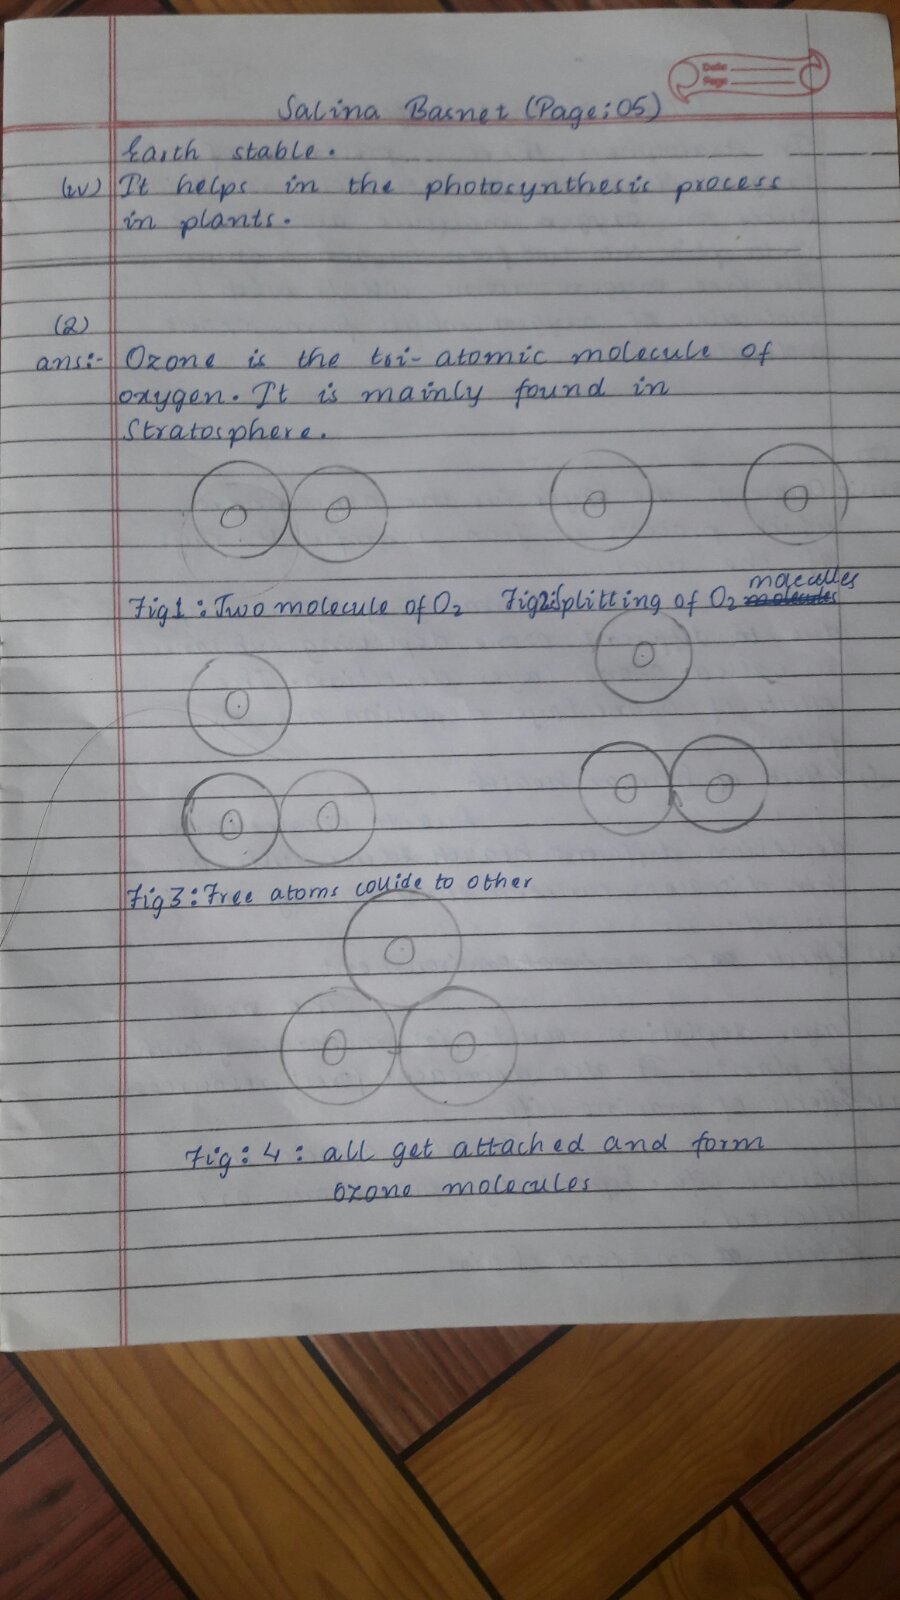 Date
Page
Salina Basnet (Page:05)
Earth stable.
(iv) It helps in the photosynthesis process
in plants.
(2)
ans:- Ozone is the tri-atomic molecule of
oxygen. It is mainly found in
Stratosphere.
O O O O
Fig1: Two molecule of O2 Fig2:Splitting of O2 molecules
O O
O O O O
Fig3: Free atoms collide to other
O
O O
Fig: 4: all get attached and form
ozone molecules